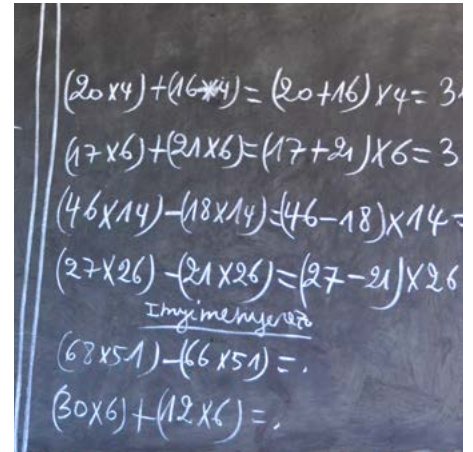 (20x4)+(16x4)=(20+16)x4=3
(17x6)+(21x6)=(17+21)x6=3
(46x14)-(18x14)=(46-18)x14=
(27x26)-(21x26)=(27-21)x26
Imyimenyerezo
(68x51)-(66x51)=.
(30x6)+(12x6)=.